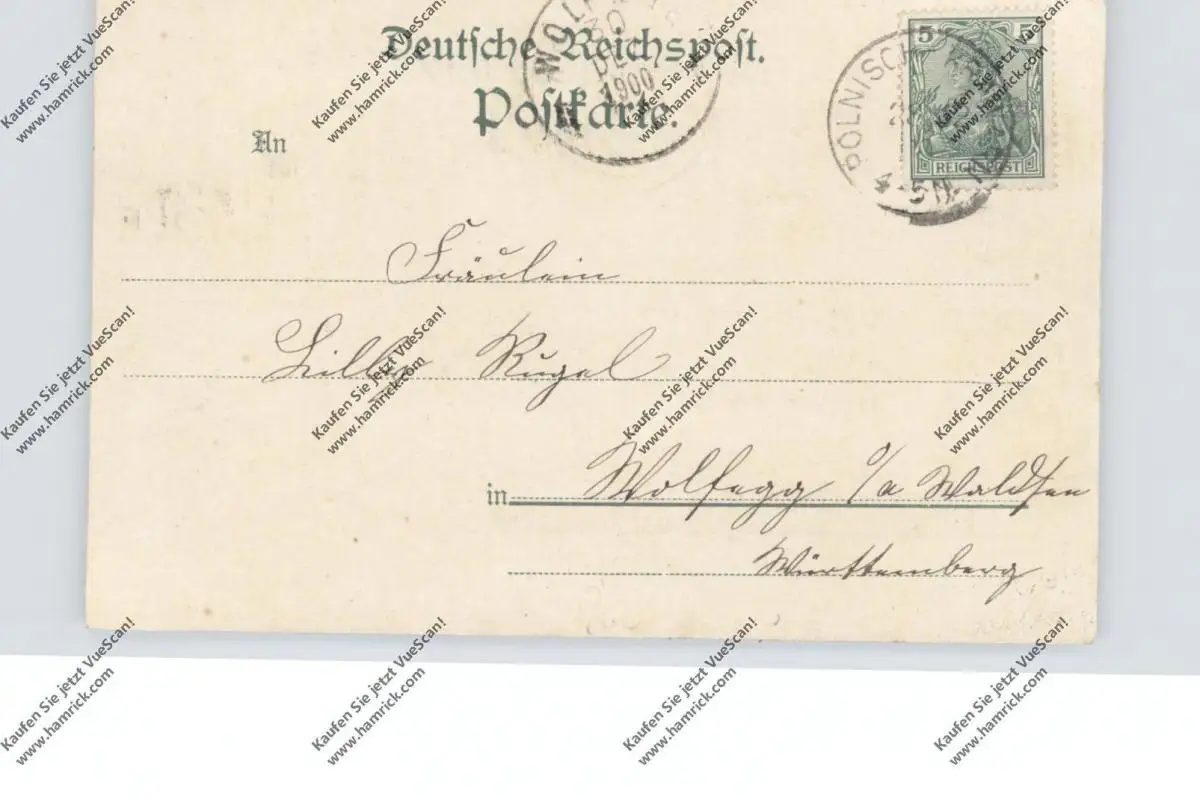 Deutsche Reichspost.
Postkarte.
An
WOL
30
DE
1900
5
REICHSPOST
POLNISCH
4-5N.
Fräulein
Lilly Rugel
in Wolfegg o/a Waldsee
Württemberg
Kaufen Sie jetzt VueScan!
www.hamrick.com
Kaufen Sie jetzt VueScan!
www.hamrick.com
Kaufen Sie jetzt VueScan!
www.hamrick.com
Kaufen Sie jetzt VueScan!
www.hamrick.com
Kaufen Sie jetzt VueScan!
www.hamrick.com
Kaufen Sie jetzt VueScan!
www.hamrick.com
Kaufen Sie jetzt VueScan!
www.hamrick.com
Kaufen Sie jetzt VueScan!
www.hamrick.com
Kaufen Sie jetzt VueScan!
www.hamrick.com
Kaufen Sie jetzt VueScan!
www.hamrick.com
Kaufen Sie jetzt VueScan!
www.hamrick.com
Kaufen Sie jetzt VueScan!
www.hamrick.com